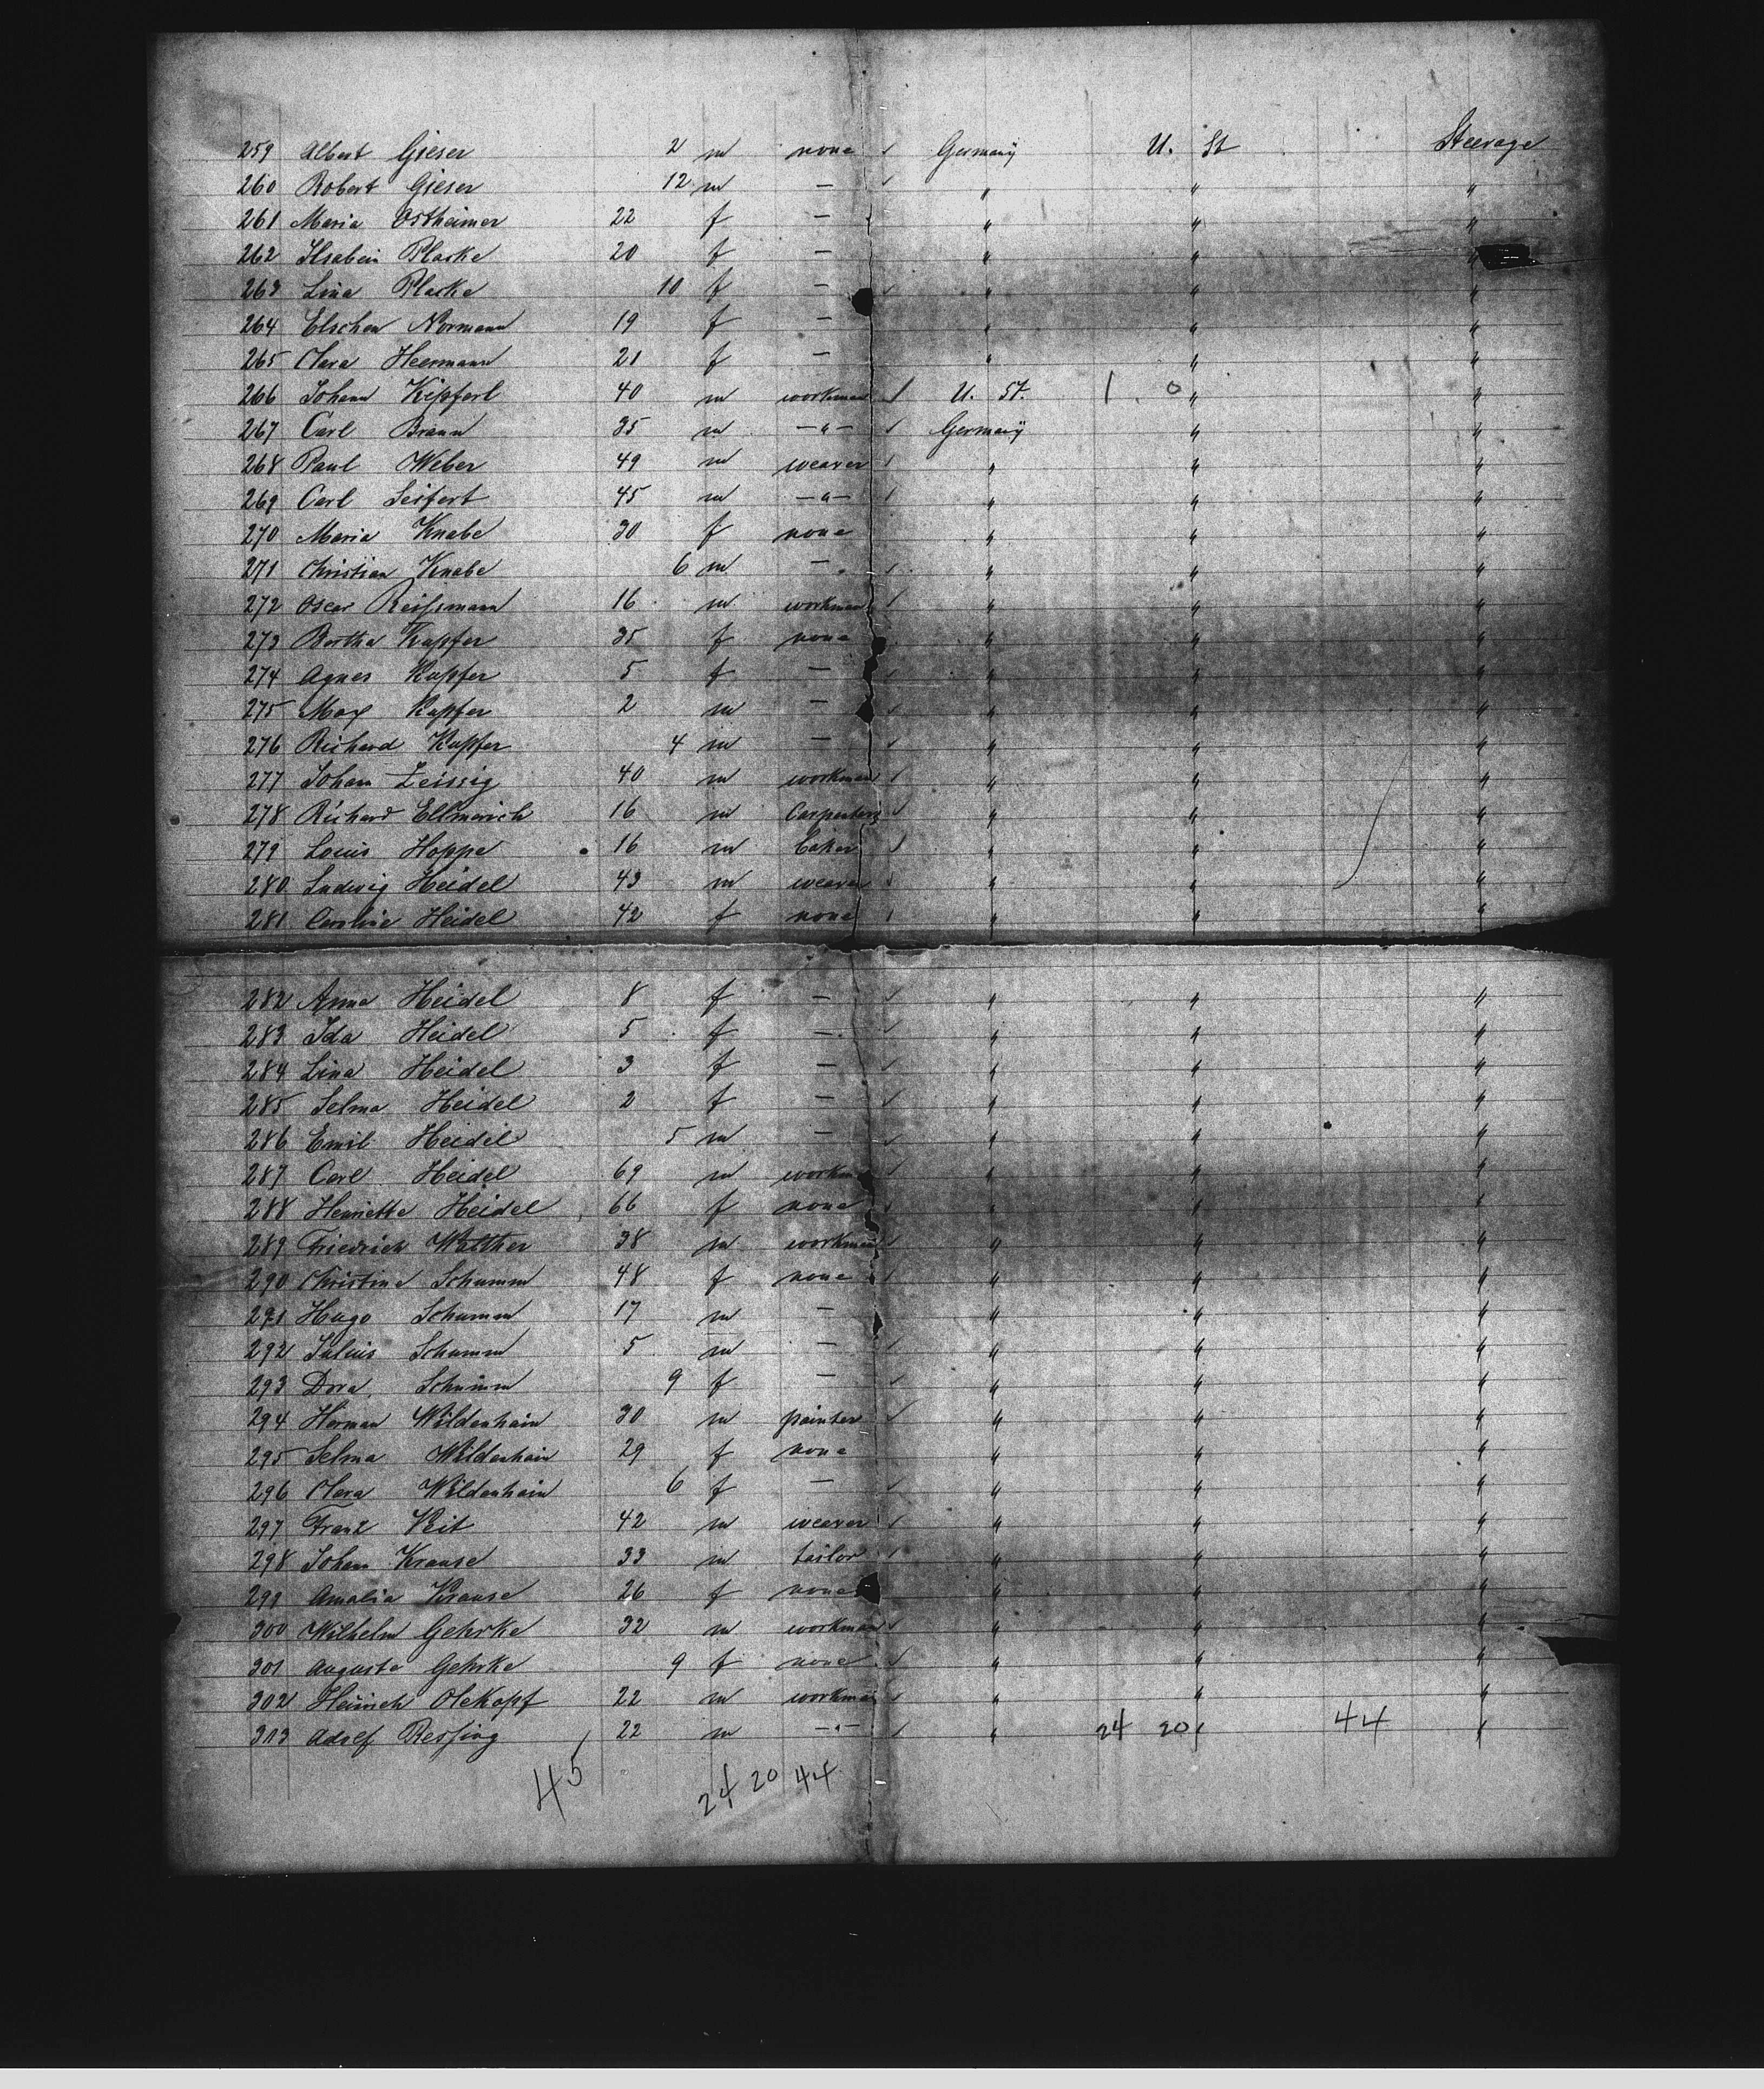 259 Albert Gieser 2 m none ✓ Germany U. St Steerage
260 Robert Gieser 12 m — ✓ " " "
261 Maria Ostheimer 22 f — " " "
262 Ilsabein Placke 20 f — " " "
263 Lina Placke 10 f — ✓ " " "
264 Elschen Normann 19 f — " " "
265 Clara Heermann 21 f — " " "
266 Johann Kipferl 40 m workman ✓ U. St. 1 0 " "
267 Carl Braun 35 m —"— ✓ Germany " "
268 Paul Weber 49 m weaver ✓ " " "
269 Carl Seifert 45 m —"— ✓ " " "
270 Maria Knabe 30 f none " " "
271 Christian Knabe 6 m — ✓ " " "
272 Oscar Reissmann 16 m workman ✓ " " "
273 Bertha Kupfer 35 f none " " "
274 Agnes Kupfer 5 f — ✓ " " "
275 Max Kupfer 2 m — ✓ " " "
276 Richard Kupfer 4 m — ✓ " " "
277 Johann Zeissig 40 m workman ✓ " " "
278 Richard Ellmerich 16 m Carpenter ✓ " " "
279 Louis Hoppe 16 m baker ✓ " " "
280 Ludwig Heidel 43 m weaver ✓ " " "
281 Caroline Heidel 42 f none ✓ " " "
282 Anna Heidel 8 f — ✓ " " "
283 Ida Heidel 5 f — ✓ " " "
284 Lina Heidel 3 f — ✓ " " "
285 Selma Heidel 2 f — ✓ " " "
286 Emil Heidel 5 m — ✓ " " "
287 Carl Heidel 69 m workman ✓ " " "
288 Henriette Heidel 66 f none ✓ " " "
289 Friedrich Walther 38 m workman ✓ " " "
290 Christine Schumm 48 f none ✓ " " "
291 Hugo Schumm 17 m — " " "
292 Julius Schumm 5 m — ✓ " " "
293 Dora Schumm 9 f — ✓ " " "
294 Herman Wildenhain 30 m painter ✓ " " "
295 Selma Wildenhain 29 f none " " "
296 Clara Wildenhain 6 f — ✓ " " "
297 Franz Veit 42 m weaver ✓ " " "
298 Johann Krause 33 m tailor ✓ " " "
299 Amalia Krause 26 f none " " "
300 Wilhelm Gehrke 32 m workman ✓ " " "
301 Auguste Gehrke 9 f none ✓ " " "
302 Heinrich Olekopf 22 m workman ✓ " " "
303 Adolf 22 m —"— ✓ " 24 20 " 44 "
45 24 20 44